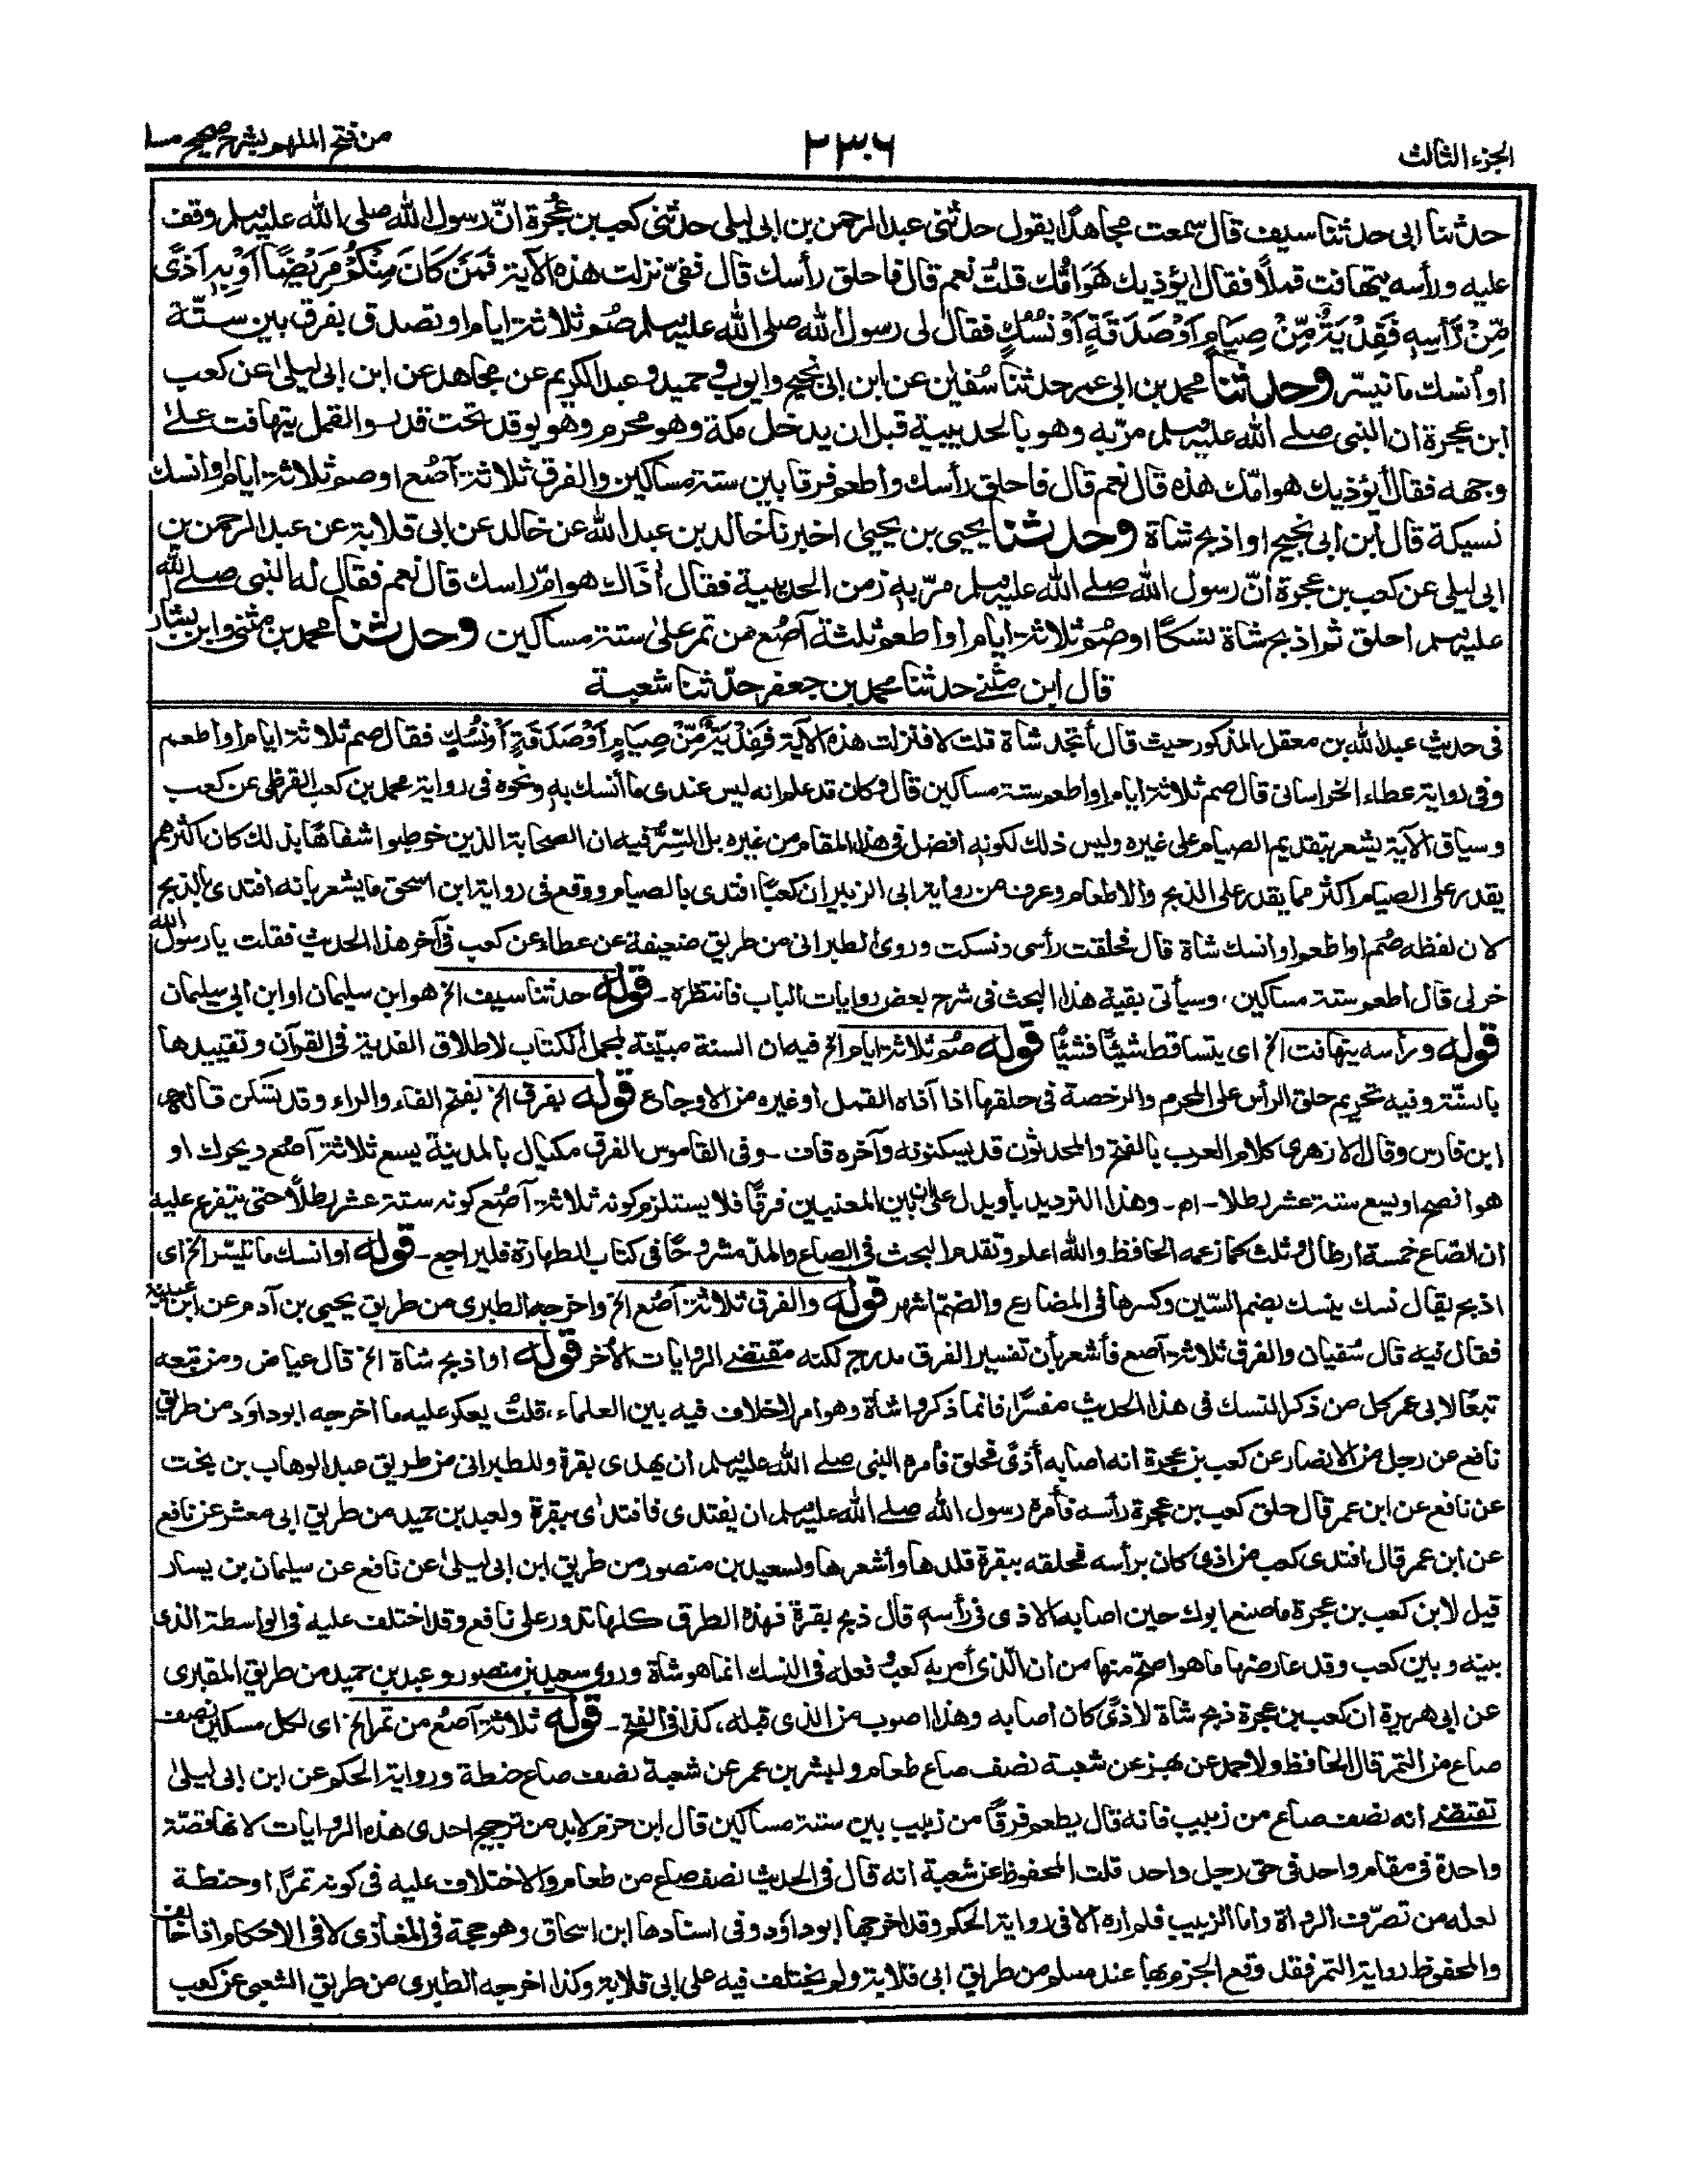 الجزء الثالث
٢٣٠٦
من فتح الملهم بشرح صحيح مسلم
حدثنا ابى حدثنا سيف قال سمعت مجاهدًا يقول حدثنى عبد الرحمن بن ابى ليلى حدثنى كعب بن عُجْرة انّ رسول الله صلى الله عليه وسلم وقف
عليه ورأسه يتهافت قملًا فقال ايؤذيك هَوَامُّك قلتُ نعم قال فاحلق رأسك قال ففىّ نزلت هذه الآية فَمَنْ كَانَ مِنْكُمْ مَرِيْضًا اَوْ بِهٖ اَذًى
مِّنْ رَّأْسِهٖ فَفِدْيَةٌ مِّنْ صِيَامٍ اَوْ صَدَقَةٍ اَوْ نُسُكٍ فقال لى رسول الله صلى الله عليه وسلم صُمْ ثلاثة ايام او تصدق بفرق بين ستّة
او اُنسك ما تيسّر وحدثنا محمد بن ابى عمر حدثنا سُفيٰن عن ابن ابى نجيح وايوب وحميد وعبد الكريم عن مجاهد عن ابن ابى ليلىٰ عن كعب
ابن عجرة ان النبى صلى الله عليه وسلم مرّ به وهو بالحديبية قبل ان يدخل مكة وهو محرم وهو يوقد تحت قدر والقمل يتهافت علىٰ
وجهه فقال أيؤذيك هوامّك هذه قال نعم قال فاحلق رأسك وأطعم فرقا بين ستة مساكين والفرق ثلاثة آصُع او صم ثلاثة ايام او انسك
نسيكة قال ابن ابى نجيح او اذبح شاة وحدثنا يحيى بن يحيىٰ اخبرنا خالد بن عبد الله عن خالد عن ابى قلابة عن عبد الرحمن بن
ابى ليلى عن كعب بن عجرة انّ رسول الله صلى الله عليه وسلم مرّ به زمن الحديبية فقال اٰذاك هوامّ راسك قال نعم فقال له النبى صلى الله
عليه وسلم احلق ثم اذبح شاة نسكًا او صُم ثلاثة ايام او اطعم ثلٰثة آصُع من تمر علىٰ ستة مساكين وحدثنا محمد بن مثنى وابن بشار
قال ابن مثنى حدثنا محمد بن جعفر حدّثنا شعبة
فى حديث عبد الله بن معقل المذكور حيث قال أتجد شاة قلت لا فنزلت هذه الآية فَفِدْيَةٌ مِّنْ صِيَامٍ اَوْ صَدَقَةٍ اَوْ نُسُكٍ فقال صم ثلاثة ايام او اطعم
وفى رواية عطاء الخراسانى قال صم ثلاثة ايام او أطعم ستة مساكين قال وكان قد علم انه ليس عندى ما أنسك به ونحوه فى رواية محمد بن كعب القرظى عن كعب
وسياق الآية يشعر بتقديم الصيام على غيره وليس ذلك لكونه افضل فى هذا المقام من غيره بل السِّرُّ فيه ان الصحابة الذين خوطبوا شفاهًا بذلك كان اكثرهم
يقدر على الصيام اكثر مما يقدر على الذبح والاطعام وعرف من رواية ابى الزبير ان كعبًا افتدى بالصيام ووقع فى رواية ابن اسحق ما يشعر بانه افتدى بالذبح
لان لفظه صُم او اطعم او انسك شاة قال فحلقت رأسى ونسكت وروى الطبرانى من طريق ضعيفة عن عطاء عن كعب فى آخر هذا الحديث فقلت يا رسول الله
خر لى قال اطعم ستة مساكين، وسيأتى بقية هذا البحث فى شرح بعض روايات الباب فانتظره ـ قوله حدثنا سيف الخ هو ابن سليمان او ابن ابى سليمان
قوله ورأسه يتهافت الخ اى يتساقط شيئًا فشيئًا قوله صُم ثلاثة ايام الخ فيه ان السنة مبيّنة لمجمل الكتاب لاطلاق الفدية فى القرآن وتقييدها
بالسنّة وفيه تحريم حلق الرأس على المحرم والرخصة فى حلقها اذا آذاه القمل او غيره من الاوجاع قوله بفرق الخ بفتح الفاء والراء وقد تسكن قاله
ابن فارس وقال الازهرى كلام العرب بالفتح والمحدثون قد يسكنونه وآخره قاف ـ وفى القاموس الفرق مكيال بالمدينة يسع ثلاثة آصُع ويحرك او
هو افصح او يسع ستة عشر رطلا ـ اھ ـ وهذا الترديد بأو يدل على ان بين المعنيين فرقًا فلا يستلزم كونه ثلاثة آصُع كونه ستة عشر رطلًا حتى يتفرع عليه
ان الصّاع خمسة ارطال وثلث كما زعمه الحافظ والله اعلم وتقدم البحث فى الصاع والمدّ مشروحًا فى كتاب الطهارة فليراجع ـ قوله او انسك ما تيسّر الخ اى
اذبح يقال نسك ينسك بضم السّين وكسرها فى المضارع والضمّ اشهر قوله والفرق ثلاثة آصُع الخ واخرجه الطبرى من طريق يحيى بن آدم عن ابن عيينة
فقال فيه قال سُفيان والفرق ثلاثة آصع فأشعر بأن تفسير الفرق مدرج لكنه مقتضى الروايات الاُخر قوله او اذبح شاة الخ قال عياض ومن تبعه
تبعًا لابى عمر كل من ذكر النسك فى هذا الحديث مفسّرًا فانما ذكروا شاة وهو امر لا خلاف فيه بين العلماء، قلتُ يعكر عليه ما اخرجه ابو داوٗد من طريق
نافع عن رجل من الانصار عن كعب بن عجرة انه اصابه أذًى فحلق فأمره النبى صلى الله عليه وسلم ان يهدى بقرة وللطبرانى من طريق عبد الوهاب بن بخت
عن نافع عن ابن عمر قال حلق كعب بن عجرة رأسه فأمره رسول الله صلى الله عليه وسلم ان يفتدى فافتدىٰ ببقرة ولعبد بن حميد من طريق ابى معشر عن نافع
عن ابن عمر قال افتدى كعب من اذى كان برأسه فحلقه ببقرة قلدها وأشعرها ولسعيد بن منصور من طريق ابن ابى ليلىٰ عن نافع عن سليمان بن يسار
قيل لابن كعب بن عجرة ما صنع ابوك حين اصابه الاذى فى رأسه قال ذبح بقرة فهذه الطرق كلها تدور على نافع وقد اختلف عليه فى الواسطة الذى
بينه وبين كعب وقد عارضها ما هو اصحّ منها من ان الّذى أمر به كعبٌ وفعله فى النسك انما هو شاة وروى سعيد بن منصور وعبد بن حميد من طريق المقبرى
عن ابى هريرة ان كعب بن عجرة ذبح شاة لاذًى كان اصابه وهذا اصوب من الذى قبله، كذا فى الفتح ـ قوله ثلاثة آصُع من تمر الخ اى لكل مسكين نصف
صاع من التمر قال الحافظ ولاحمد عن بهز عن شعبة نصف صاع طعام ولبشر بن عمر عن شعبة نصف صاع حنطة ورواية الحكم عن ابن ابى ليلىٰ
تقتضى انه نصف صاع من زبيب فانه قال يطعم فرقًا من زبيب بين ستة مساكين قال ابن حزم لابد من ترجيح احدى هذه الروايات لانها قصّة
واحدة فى مقام واحد فى حق رجل واحد قلت المحفوظ عن شعبة انه قال فى الحديث نصف صاع من طعام والاختلاف عليه فى كونه تمرًا او حنطة
لعله من تصرّف الرواة واما الزبيب فلم اره الا فى رواية الحكم وقد اخرجها ابو داوٗد وفى اسنادها ابن اسحاق وهو حجة فى المغازى لا فى الاحكام اذا خالف
والمحفوظ رواية التمر فقد وقع الجزم بها عند مسلم من طريق ابى قلابة ولم يختلف فيه على ابى قلابة وكذا اخرجه الطبرى من طريق الشعبى عن كعب